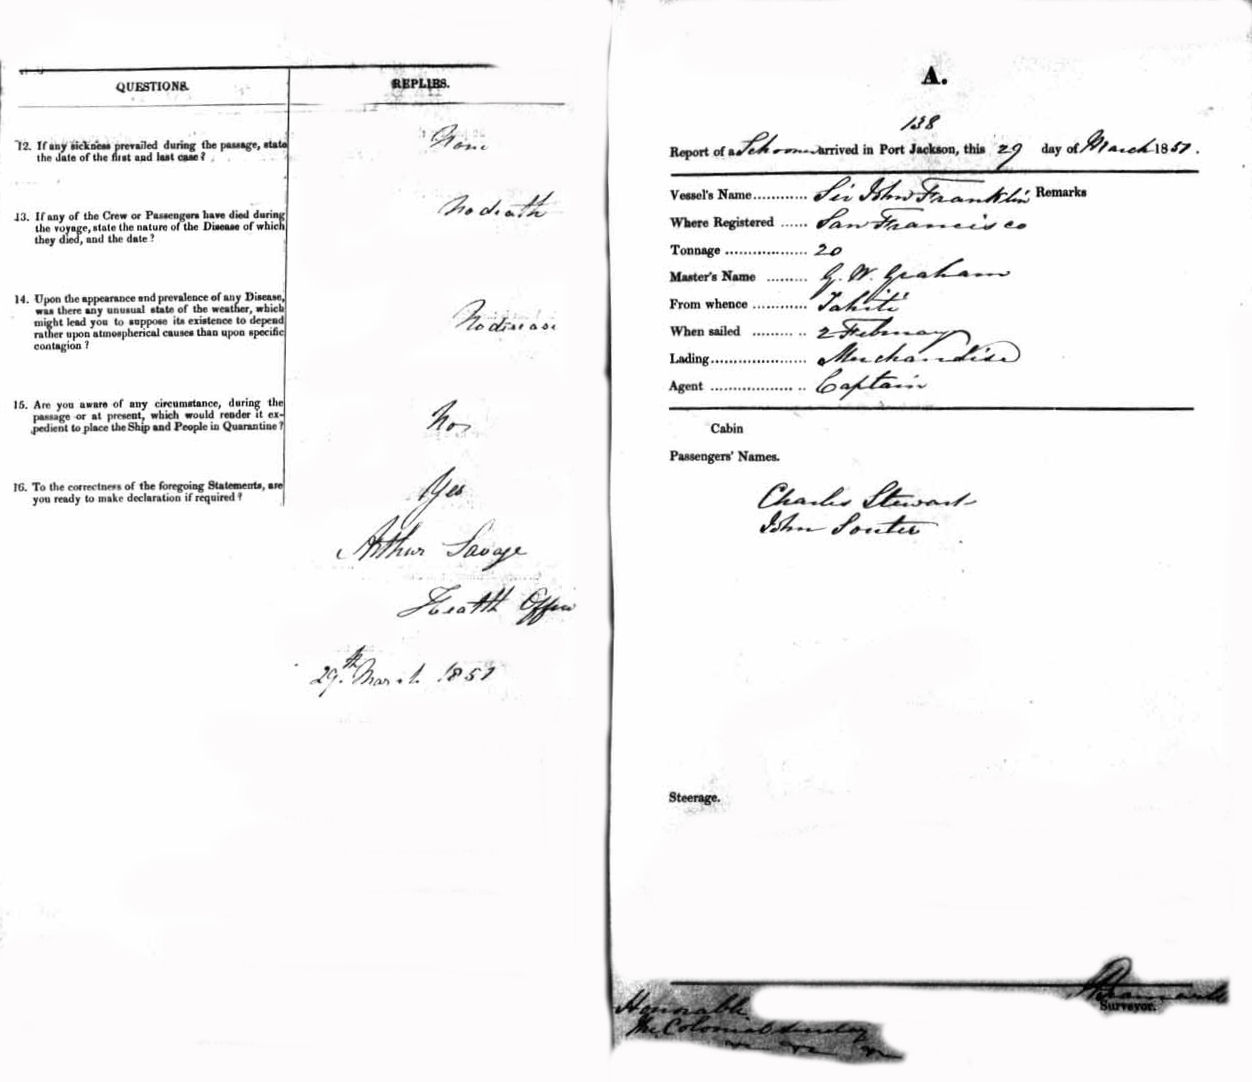 QUESTIONS.
REPLIES.
12. If any sickness prevailed during the passage, state
the date of the first and last case?
None
13. If any of the Crew or Passengers have died during
the voyage, state the nature of the Disease of which
they died, and the date?
No death
14. Upon the appearance and prevalence of any Disease,
was there any unusual state of the weather, which
might lead you to suppose its existence to depend
rather upon atmospherical causes than upon specific
contagion?
No disease
15. Are you aware of any circumstance, during the
passage or at present, which would render it ex-
pedient to place the Ship and People in Quarantine?
No
16. To the correctness of the foregoing Statements, are
you ready to make declaration if required?
Yes
Arthur Savage
Health Officer
29th March 1851
A.
138
Report of a Schooner arrived in Port Jackson, this 29 day of March 1851.
Vessel's Name............ Sir John Franklin Remarks
Where Registered ...... San Francisco
Tonnage .................. 20
Master's Name ......... G. W. Graham
From whence ............ Tahiti
When sailed ............ 2 February
Lading..................... Merchandise
Agent ..................... Captain
Cabin
Passengers' Names.
Charles Stewart
John Souter
Steerage.
Surveyor.
Honorable
The Colonial Secretary